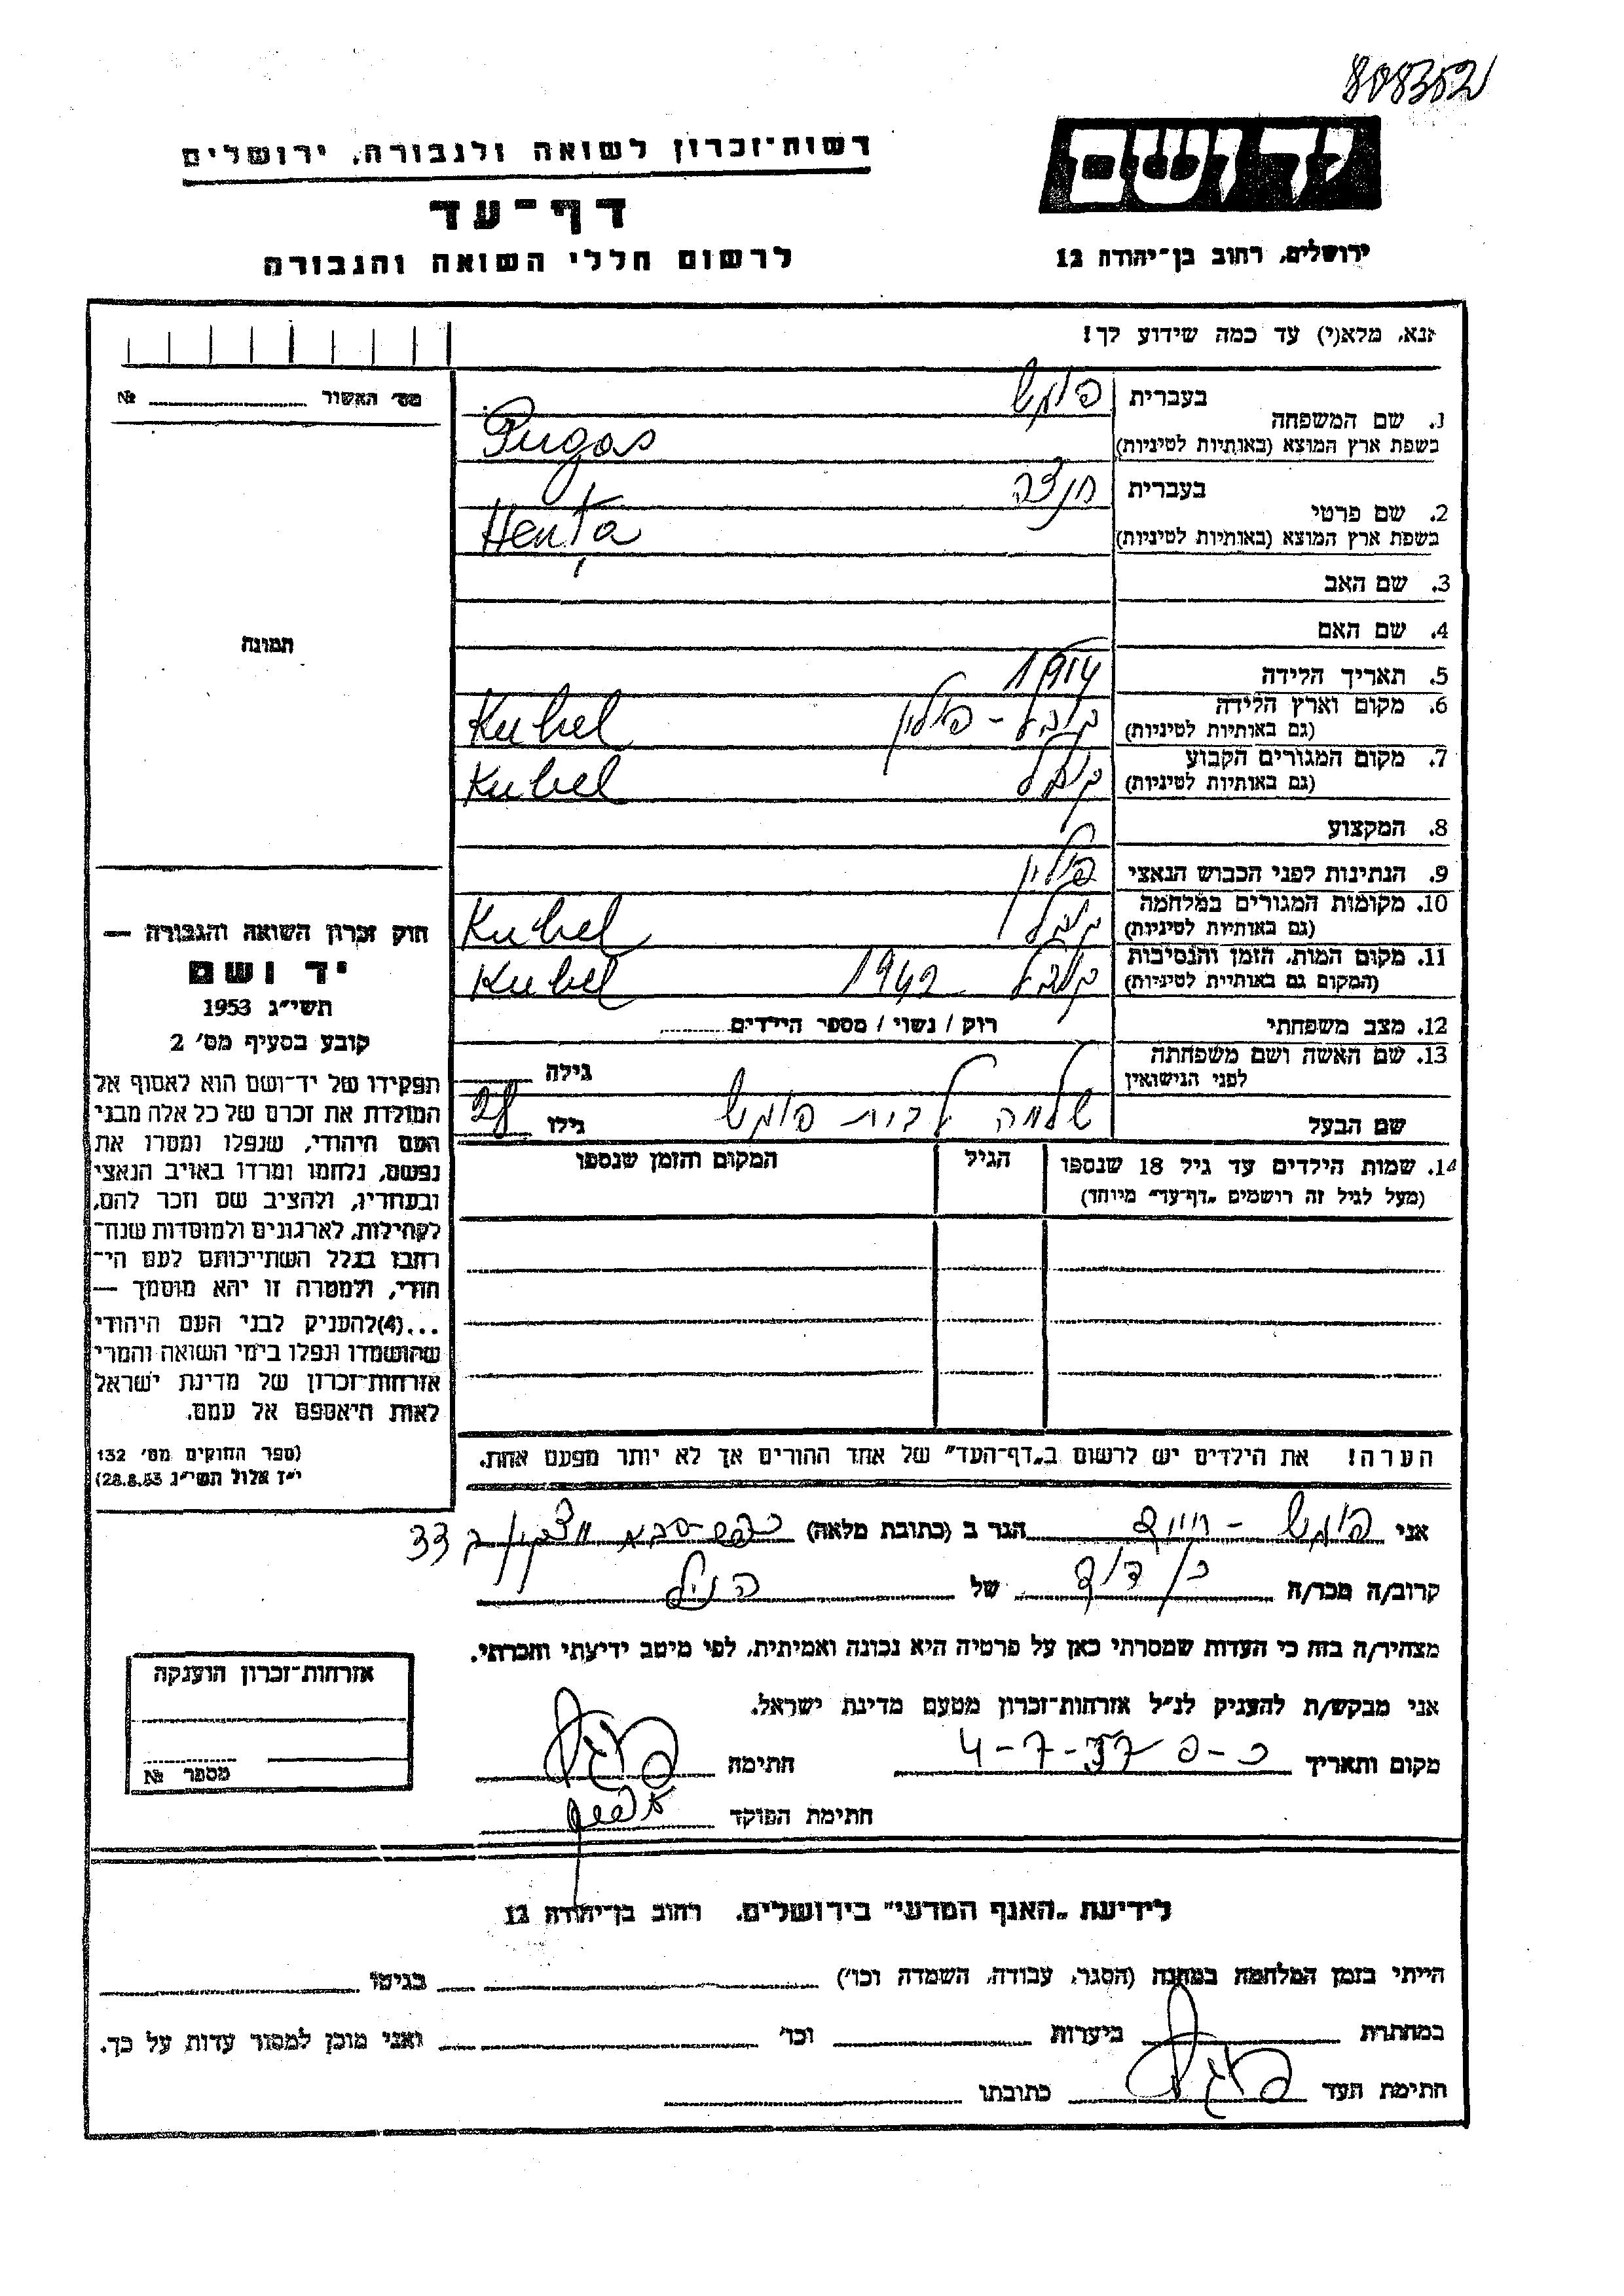 808352
רשות־זכרון לשואה ולגבורה, ירושלים
יד ושם
דף־עד
לרשום חללי השואה והגבורה
ירושלים, רחוב בן־יהודה 12
נא, מלא(י) עד כמה שידוע לך!
מס׳ האשור № 
1. שם המשפחה
בעברית
בשפת ארץ המוצא (באותיות לטיניות) Pugas
2. שם פרטי
בעברית חנצה
בשפת ארץ המוצא (באותיות לטיניות) Hența
3. שם האב
4. שם האם
תמונה
5. תאריך הלידה 1914
6. מקום וארץ הלידה
(גם באותיות לטיניות) פולין Kubel
7. מקום המגורים הקבוע
(גם באותיות לטיניות) Kubel
8. המקצוע
9. הנתינות לפני הכבוש הנאצי פולין
10. מקומות המגורים במלחמה
(גם באותיות לטיניות) Kubel
11. מקום המות, הזמן והנסיבות
(המקום גם באותיות לטיניות) 1942 Kubel
12. מצב משפחתי רוק / נשוי / מספר הילדים
13. שם האשה ושם משפחתה
לפני הנישואין גילה
שם הבעל שלמה לבית גילו 28
14. שמות הילדים עד גיל 18 שנספו
(מעל לגיל זה רושמים „דף־עד״ מיוחד)
הגיל
המקום והזמן שנספו
חוק זכרון השואה והגבורה —
יד ושם
תשי״ג 1953
קובע בסעיף מס׳ 2
תפקידו של יד־ושם הוא לאסוף אל
המולדת את זכרם של כל אלה מבני
העם היהודי, שנפלו ומסרו את
נפשם, נלחמו ומרדו באויב הנאצי
ובעוזריו, ולהציב שם וזכר להם,
לקהילות, לארגונים ולמוסדות שנח־
רבו בגלל השתייכותם לעם הי־
הודי, ולמטרה זו יהא מוסמך —
...(4)להעניק לבני העם היהודי
שהושמדו ונפלו בימי השואה והמרי
אזרחות־זכרון של מדינת ישראל
לאות היאספם אל עמם.
(ספר החוקים מס׳ 132
י״ז אלול תשי״ג 28.8.53)
הערה! את הילדים יש לרשום ב„דף־העד״ של אחד ההורים אך לא יותר מפעם אחת.
אני הגר ב (כתובת מלאה) כפר-סבא 33
קרוב/ה מכר/ה בן דוד של הנ״ל
מצהיר/ה בזה כי העדות שמסרתי כאן על פרטיה היא נכונה ואמיתית, לפי מיטב ידיעתי והכרתי.
אני מבקש/ת להעניק לנ״ל אזרחות־זכרון מטעם מדינת ישראל.
מקום ותאריך כ-ס 4-7-57 חתימה
חתימת הפוקד
אזרחות־זכרון הוענקה
מספר №
לידיעת „האגף המדעי״ בירושלים, רחוב בן־יהודה 12
הייתי בזמן המלחמה במחנה (הסגר, עבודה, השמדה וכו׳) בגיטו
במחתרת ביערות וכו׳ ואני מוכן למסור עדות על כך.
חתימת העד כתובתו